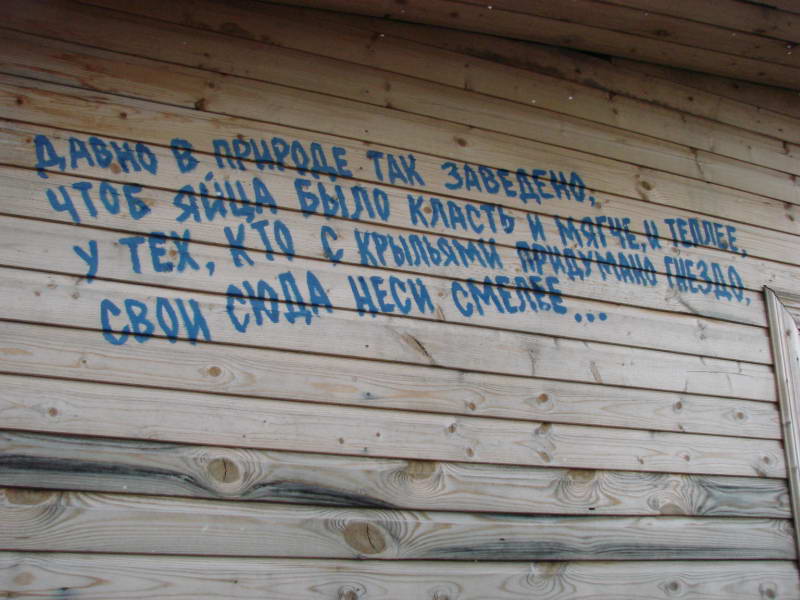 ДАВНО В ПРИРОДЕ ТАК ЗАВЕДЕНО,
ЧТОБ ЯЙЦА БЫЛО КЛАСТЬ И МЯГЧЕ, И ТЕПЛЕЕ,
У ТЕХ, КТО С КРЫЛЬЯМИ ПРИДУМАНО ГНЕЗДО,
СВОИ СЮДА НЕСИ СМЕЛЕЕ...